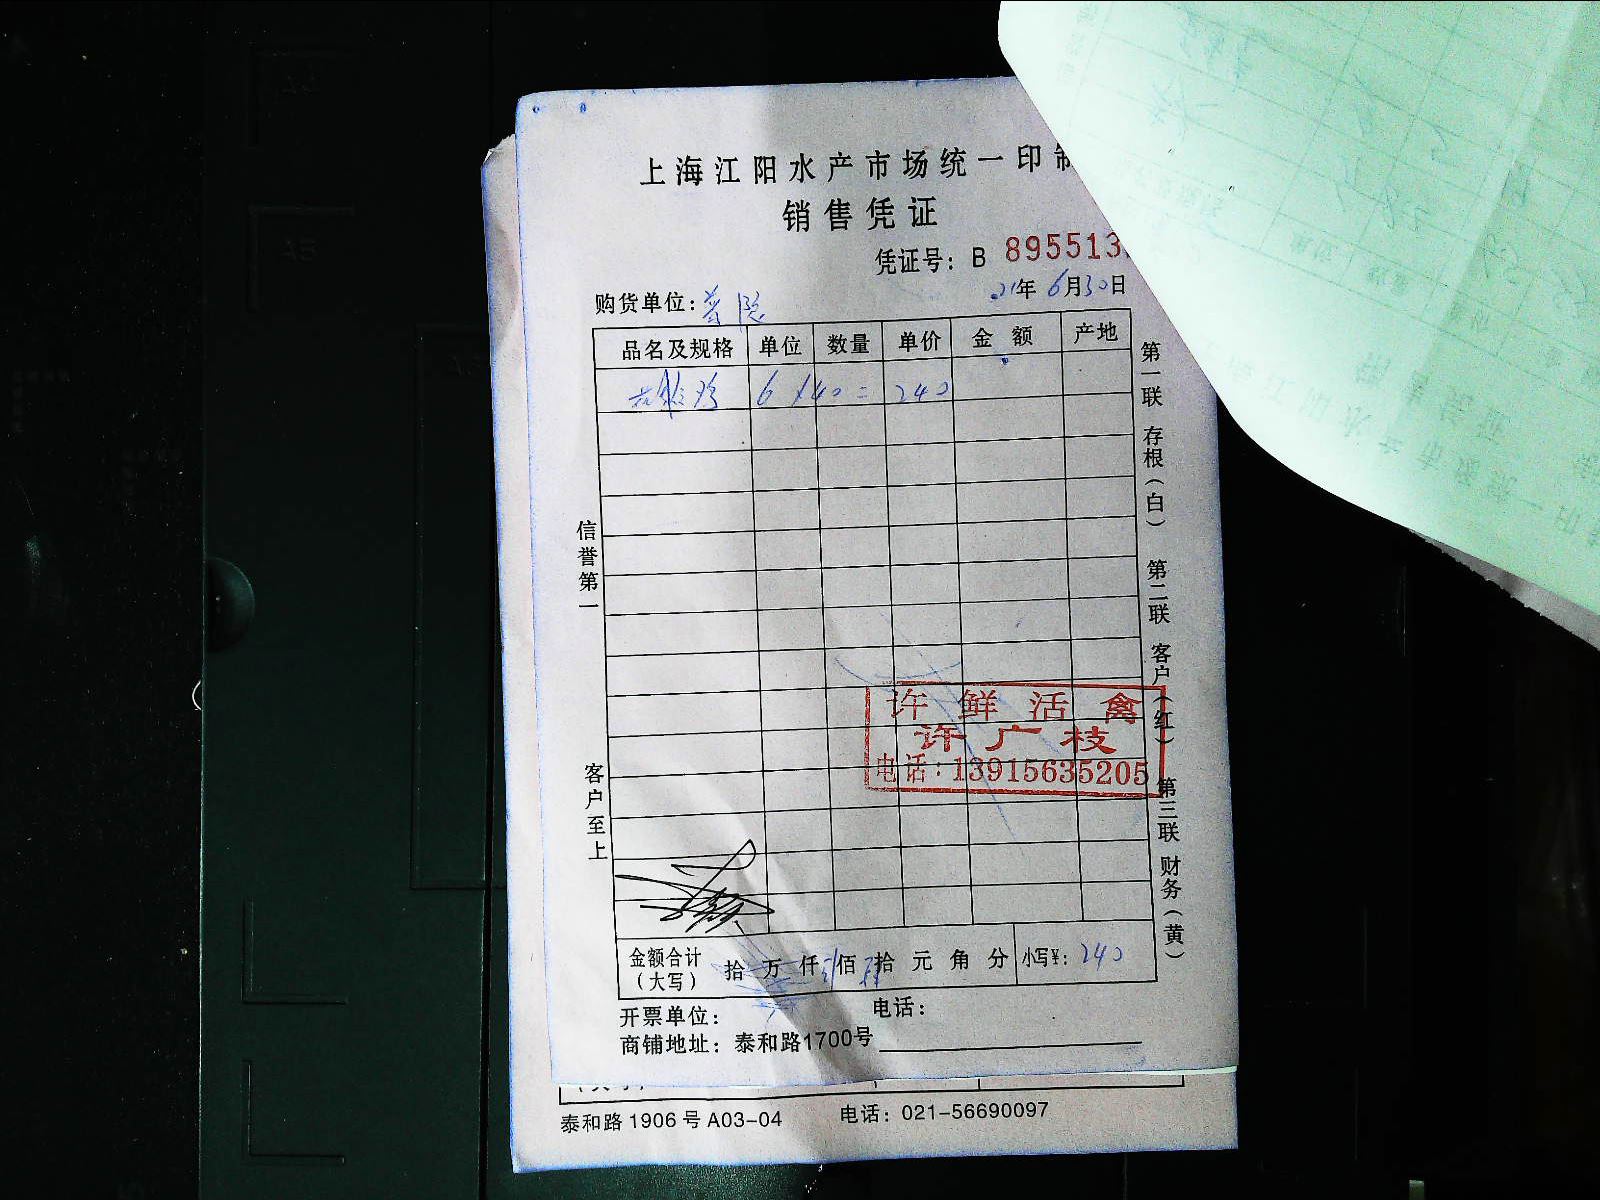 上海江阳水产市场统一印制
销售凭证
凭证号：B 895513
购货单位： 21年6月30日
品名及规格 单位 数量 单价 金额 产地
6 × 40 = 240
信誉第一
客户至上
第一联 存根（白） 第二联 客户（红） 第三联 财务（黄）
许鲜活禽
许广枝
电话：13915635205
金额合计（大写） 拾 万 仟 佰 拾 元 角 分 小写¥：240
开票单位： 电话：
商铺地址：泰和路1700号
泰和路1906号A03-04 电话：021-56690097